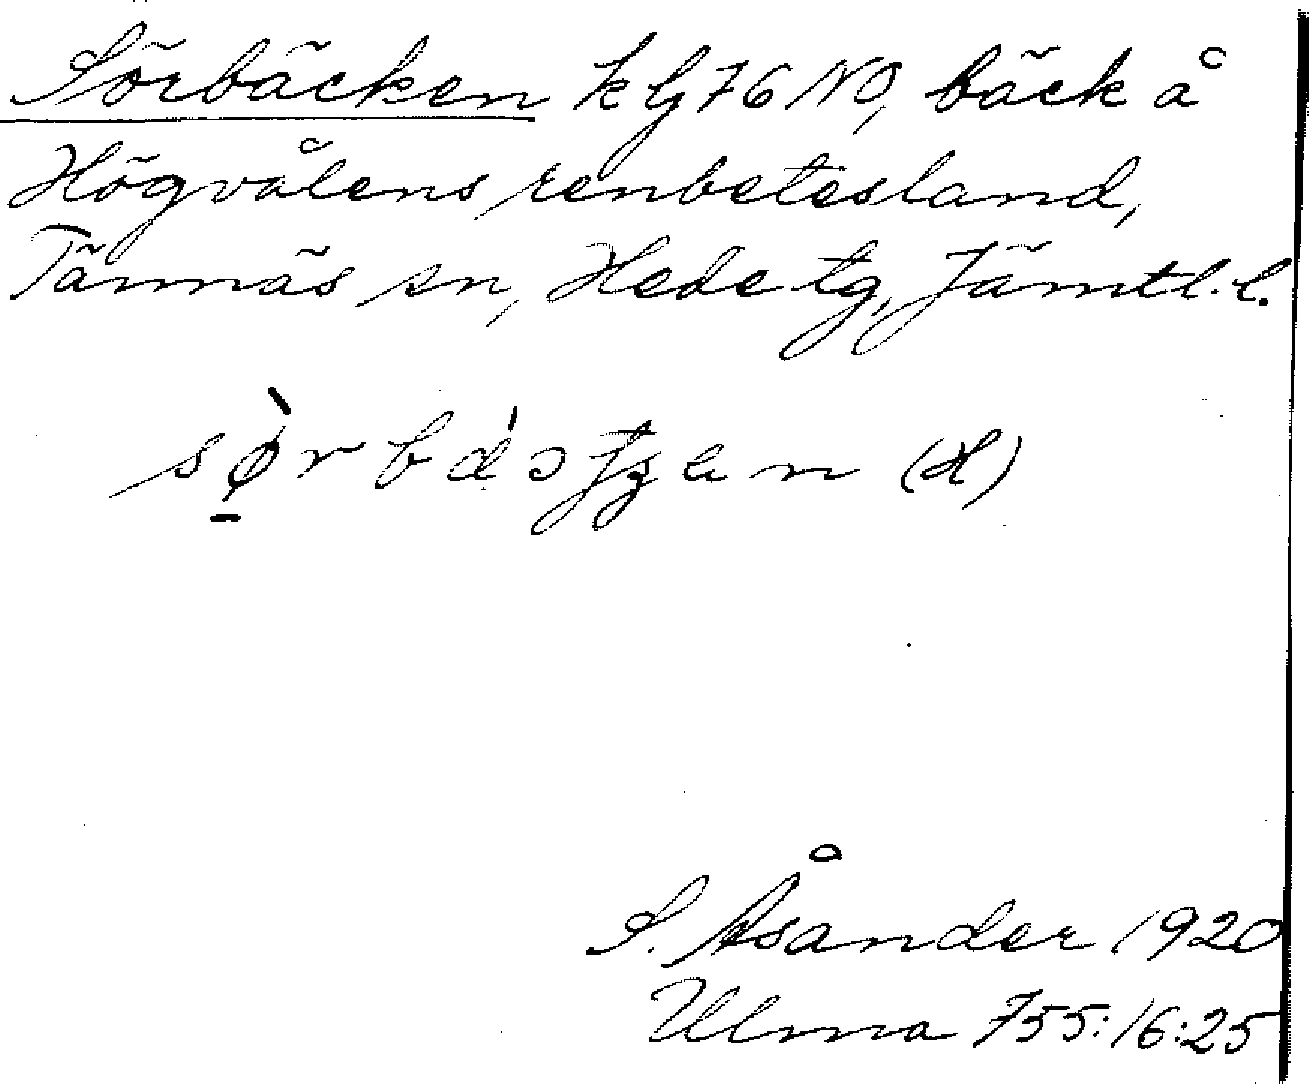 Sörbäcken kbl 76 NO, bäck å
Högvålens renbetesland,
Tännäs sn, Hede tg, Jämtl. l.
(H)
S. Åsander 1920
Ulma 755:16:25